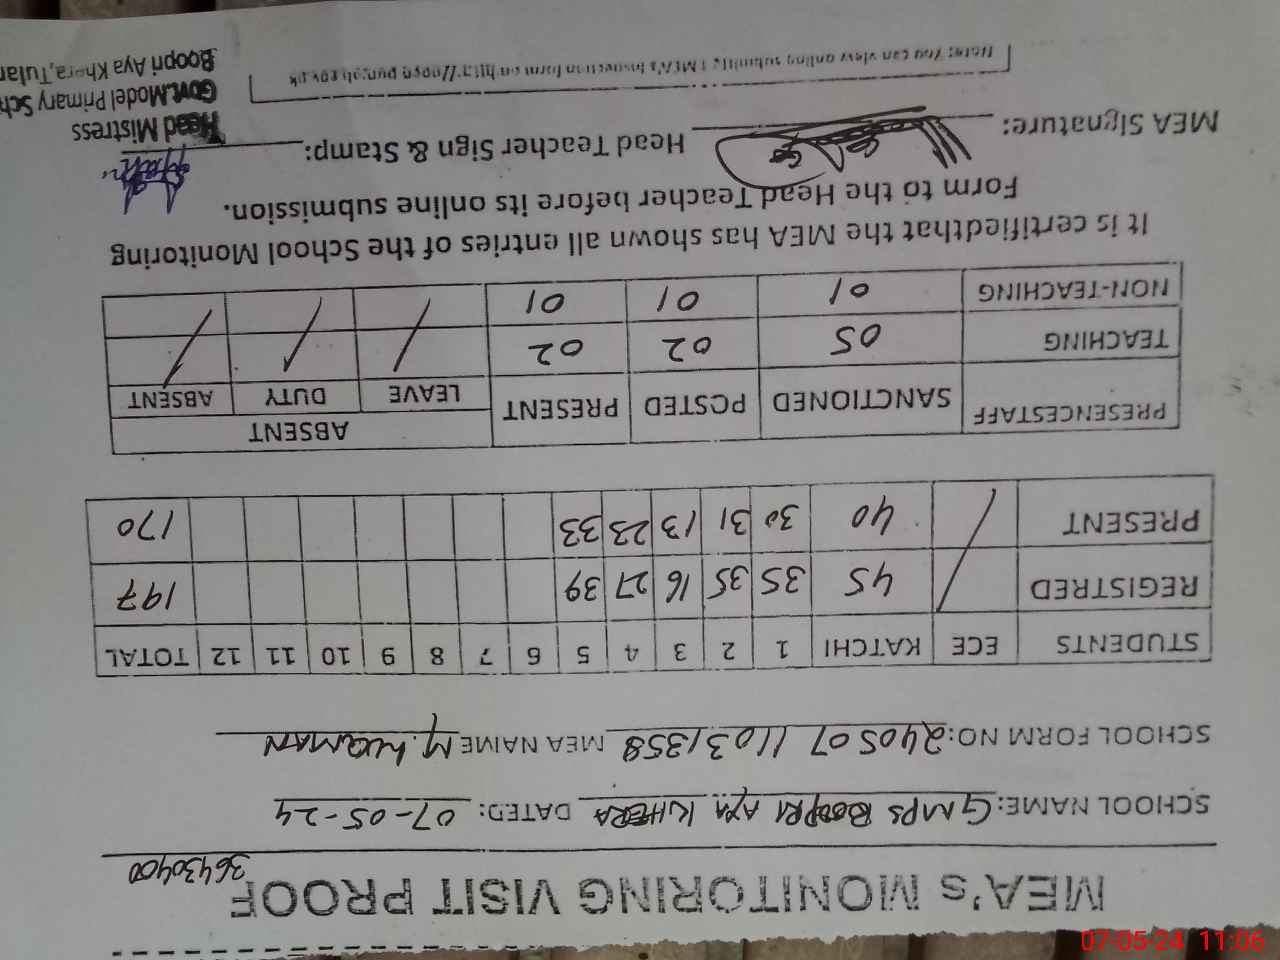 MEA's MONITORING VISIT PROOF
36430400
SCHOOL NAME: GMPS BOOPRI AYA KHERA DATED: 07-05-24
SCHOOL FORM NO: 240507 11031358 MEA NAME M. LUQMAN
STUDENTS ECE KATCHI 1 2 3 4 5 6 7 8 9 10 11 12 TOTAL
REGISTRED / 45 35 35 16 27 39 197
PRESENT 40 30 31 13 23 33 170
PRESENCESTAFF SANCTIONED POSTED PRESENT ABSENT
LEAVE DUTY ABSENT
TEACHING 05 02 02 / / /
NON-TEACHING 01 01 01
It is certifiedthat the MEA has shown all entries of the School Monitoring
Form to the Head Teacher before its online submission.
MEA Signature: Head Teacher Sign & Stamp:
Head Mistress
Govt.Model Primary Sch
Boopri Aya Khera,Tular
Note: You can view online submitted MEA's Inspection form on
07-05-24 11:06